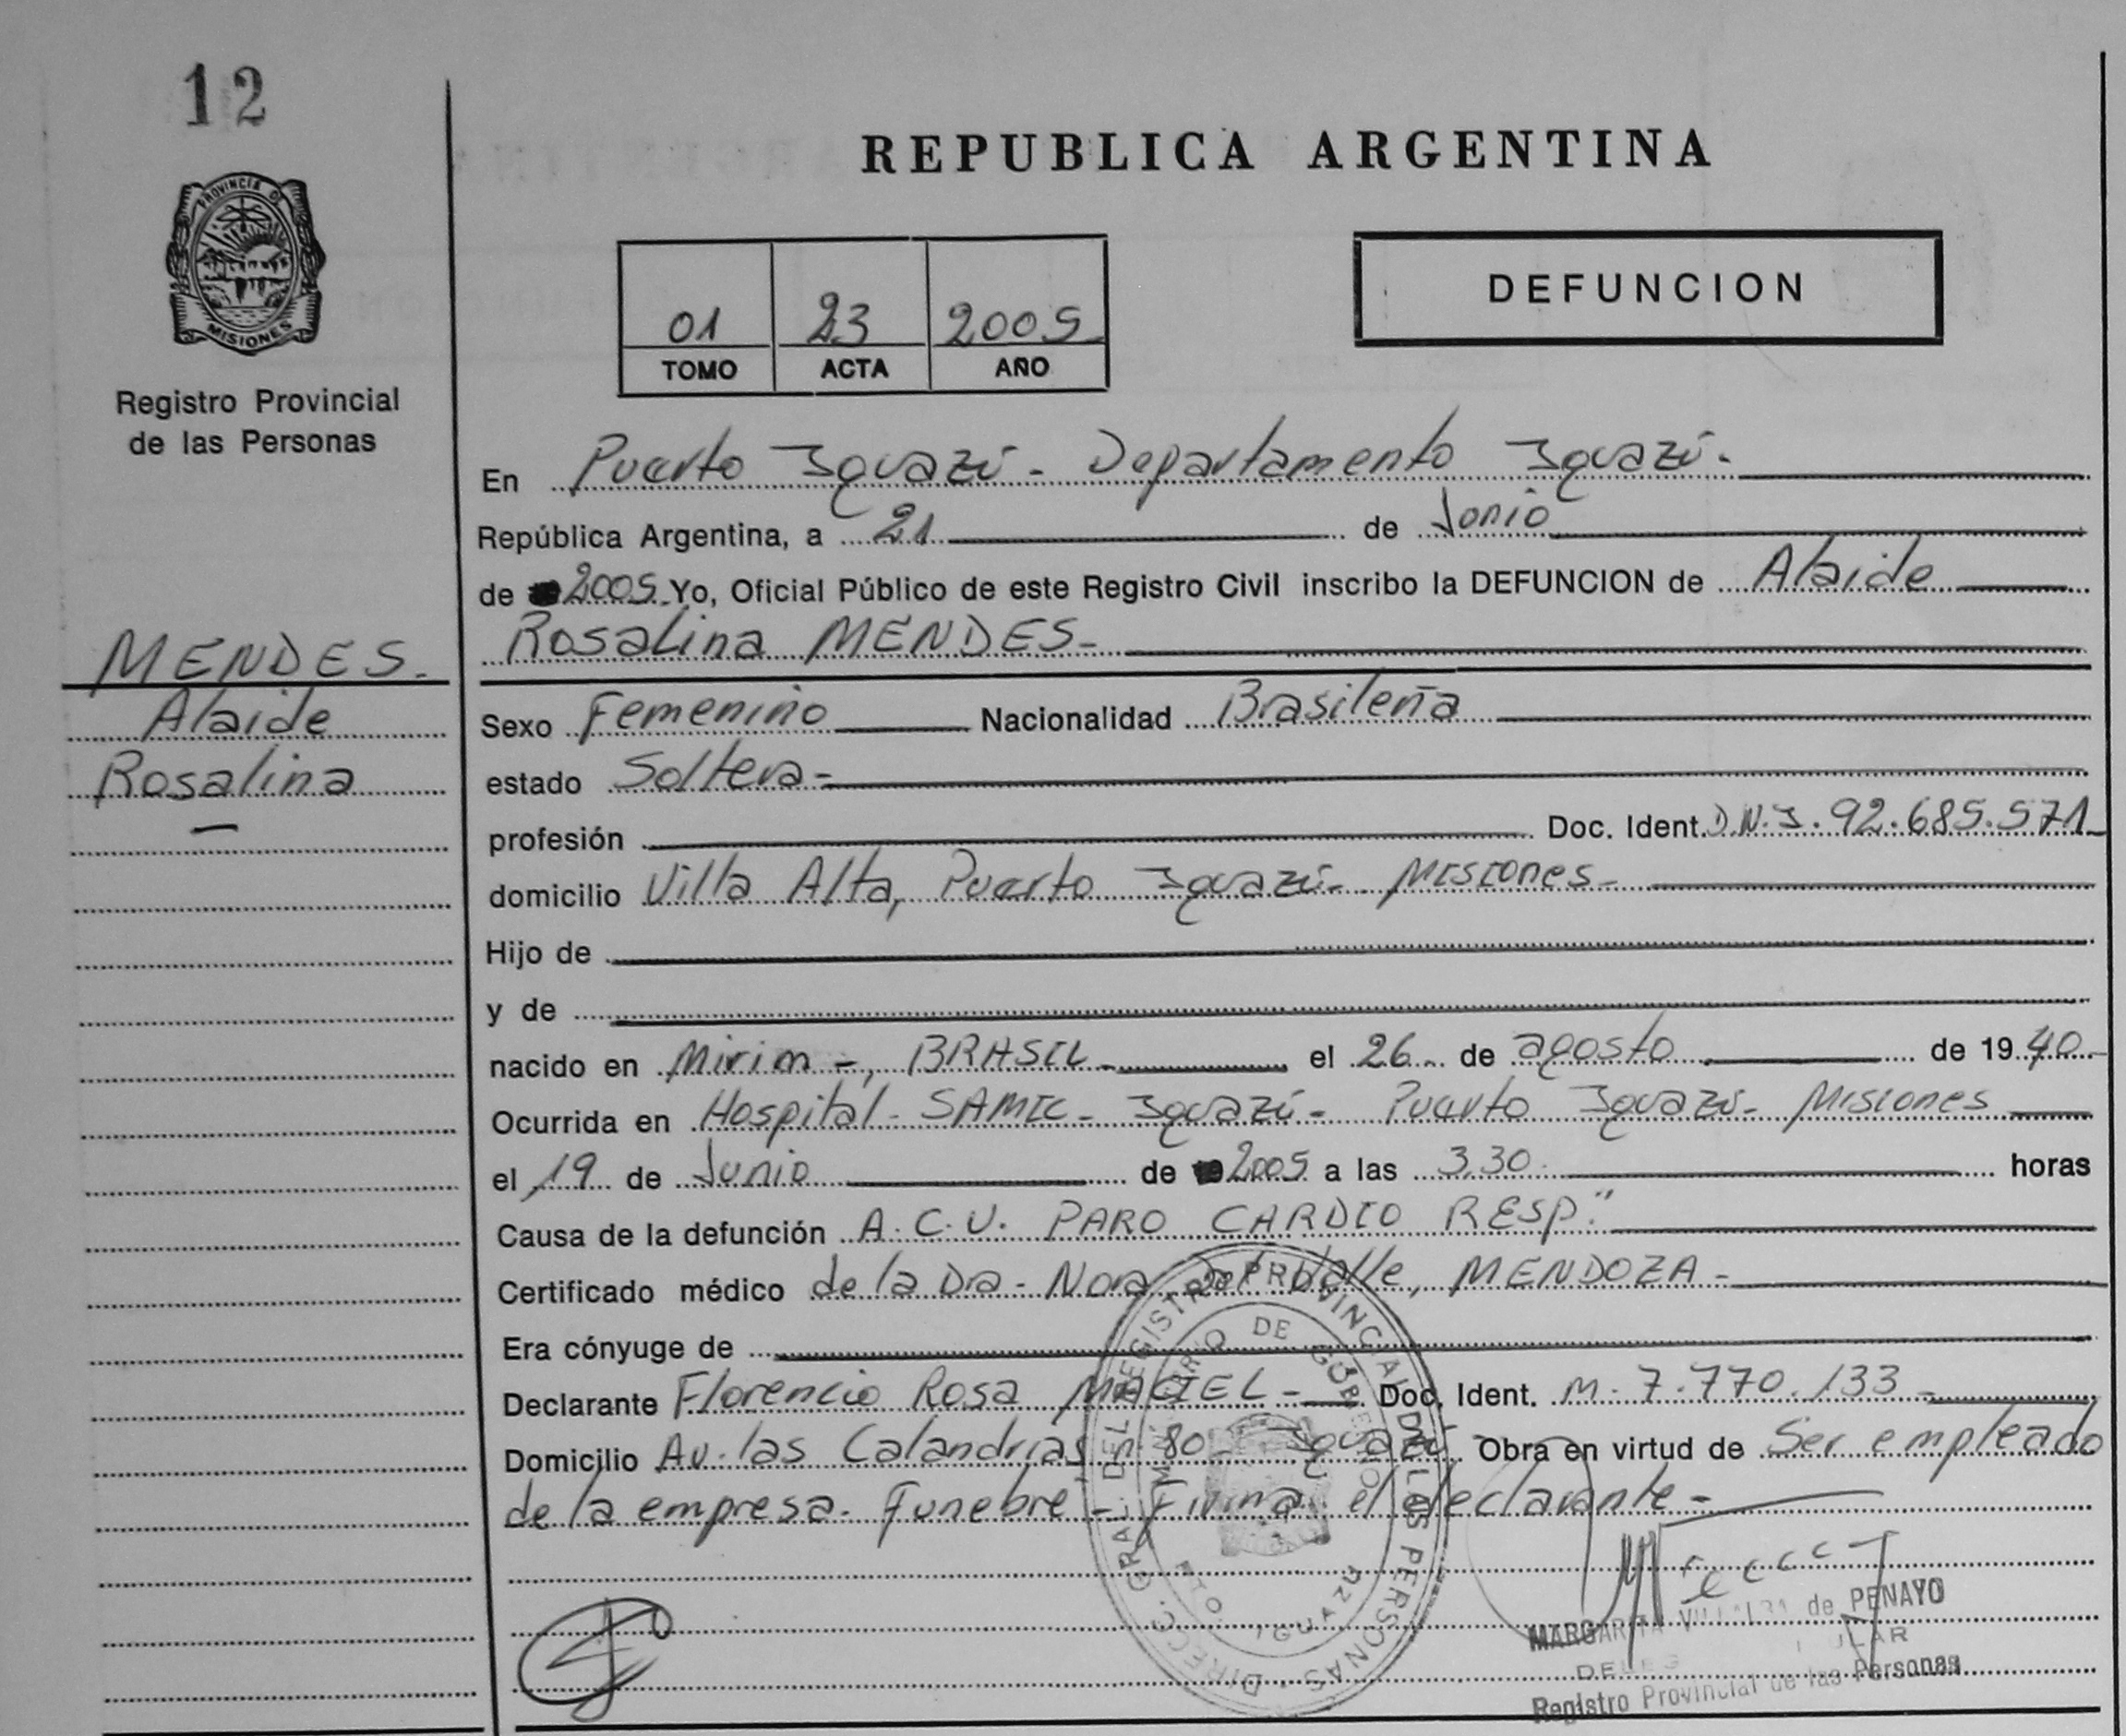 12
PROVINCIA DE
MISIONES
Registro Provincial
de las Personas
MENDES.
Alaide
Rosalina
REPUBLICA ARGENTINA
01 23 2005
TOMO ACTA AÑO
DEFUNCION
En Puerto Iguazú - Departamento Iguazú.
República Argentina, a 21 de Junio
de 2005 Yo, Oficial Público de este Registro Civil inscribo la DEFUNCION de Alaide
Rosalina MENDES-
Sexo Femenino Nacionalidad Brasileña
estado Soltera-
profesión Doc. Ident. D.N.I. 92.685.571
domicilio Villa Alta, Puerto Iguazú- Misiones-
Hijo de
y de
nacido en Mirim -, BRASIL- el 26 de agosto de 1940-
Ocurrida en Hospital- SAMIC- Iguazú- Puerto Iguazú- Misiones
el 19 de Junio de 2005 a las 3.30 horas
Causa de la defunción A.C.V. PARO CARDIO RESP."
Certificado médico de la Dra- Nora del Valle, MENDOZA-
Era cónyuge de
Declarante Florencio Rosa MACIEL- Doc. Ident. M. 7.770.133-
Domicilio Av. las Calandrias n°80- Iguazú. Obra en virtud de Ser empleado
de la empresa. Funebre- Firma el declarante-
DIRECC. GRAL. DEL REGISTRO PROVINCIAL DE LAS PERSONAS
MINISTERIO DE GOBIERNO
PTO. IGUAZU
MARGARITA VILLALBA de PENAYO
Registro Provincial de las Personas